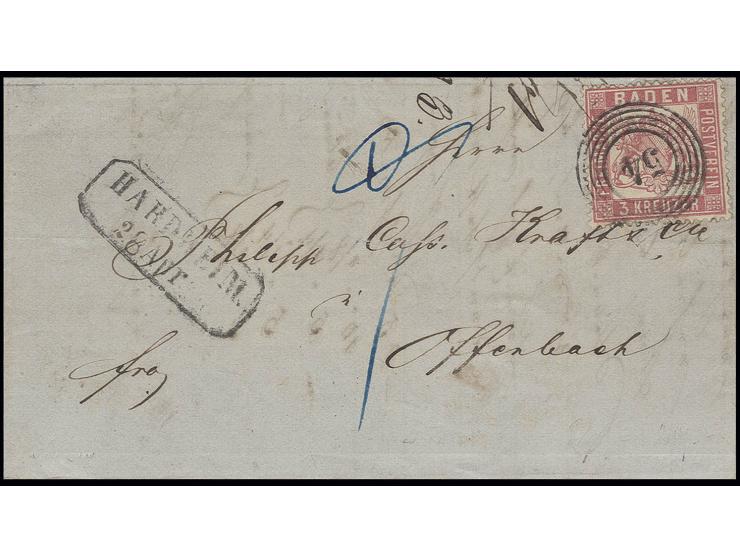 BADEN
POSTVEREIN
3 KREUZER
54
HARDHEIM.
28 Apr.
Herrn
Philipp Casp. Krafft & Cie
in
Offenbach
fro